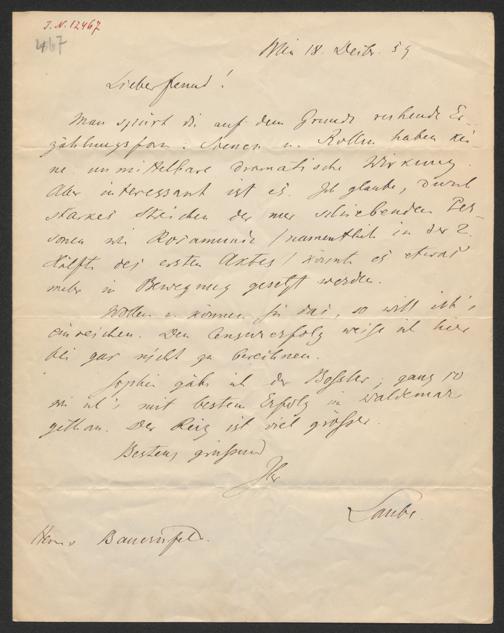 J.N. 12467
467
Wien 18. Dezbr. 59
Lieber Freund!
Man spürt die auf dem Grunde ruhende Er-
zählungsform. Scenen u. Rollen haben kei-
ne unmittelbare dramatische Wirkung.
Aber interessant ist es. Ich glaube, durch
starkes Streichen der nur schiebenden Per-
sonen wie Rosamunde /namentlich in der 2.
Hälfte des ersten Aktes/ könnte es etwas
mehr in Bewegung gesetzt werden.
Wollen u. können Sie das, so will ich's
einreichen. Den Censurerfolg weiß ich hier
bei gar nicht zu berechnen.
Sophie gäbe ich der Boßler; ganz so
wie ich's mit bestem Erfolg in Waldemar
gethan. Der Reiz ist viel größer.
Bestens grüßend
Ihr
Laube.
Herrn v Bauernfeld.